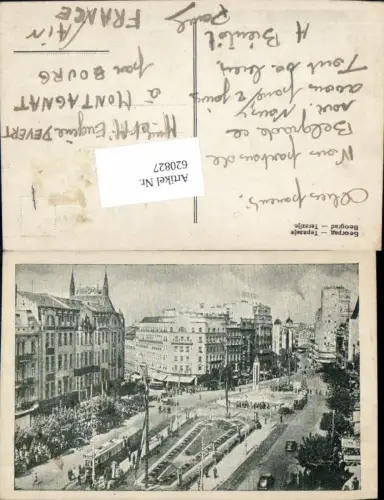 Chers parents,
Nous partons de
Belgrade ce
soir. Nous
avons passé 2 jours
Tout va bien
A Bientôt
Paul
Mr et Me Eugène DEVERT
à MONTAGNAT
par BOURG
/AIN
FRANCE
Београд — Теразије
Beograd — Terazije
Artikel Nr.
620827